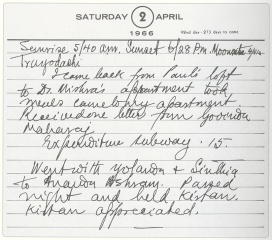 SATURDAY 2 APRIL
1966
92nd day - 273 days to come
Sunrise 5/40 am. Sunset 6/28 Pm. Moonrise
Trayodashi
I came back from Paul's loft
to Dr. Mishra's apartment took
meals came to my apartment
Received one letter from Govinda
Maharaj
Expenditure subway .15.
Went with Yolanda &
to Ananda Ashram. Passed
night and held Kirtan.
Kirtan appreceated.